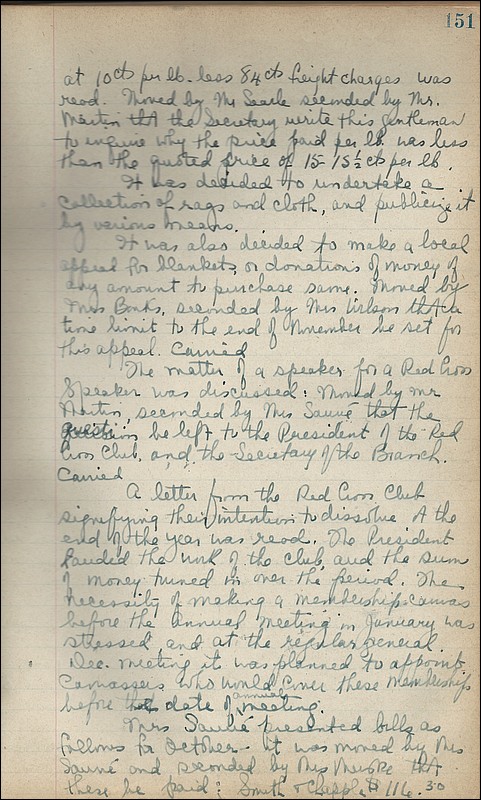 151
at 10cts per lb. less 84cts freight charges was
read. Moved by Mr Searle seconded by Mr.
Martin that the Secretary write this gentleman
to inquire why the price paid per lb. was less
than the quoted price of 15-15½ cts per lb.
It was decided to undertake a
collection of rags and cloth, and publicize it
by various means.
It was also decided to make a local
appeal for blankets or donations of money of
any amount to purchase same. Moved by
Mrs Bonks, seconded by Mrs Wilson that a
time limit to the end of November be set for
this appeal. Carried
The matter of a speaker for a Red Cross
Speaker was discussed: Moved by Mr
Martin, seconded by Mrs Sauvé that the
question be left to the President of the Red
Cross Club, and the Secretary of the Branch.
Carried
A letter from the Red Cross Club
signifying their intention to dissolve at the
end of the year was read. The President
lauded the work of the club, and the sum
of money turned in over the period. The
necessity of making a membership canvass
before the annual meeting in January was
stressed and at the regular general
Dec. meeting it was planned to appoint
canvassers who would cover these memberships
before date of annual meeting.
Mrs Sauvé presented bills as
follows for October - it was moved by Mrs
Sauvé and seconded by Mrs that
these be paid: Smith & Chapple $116.30